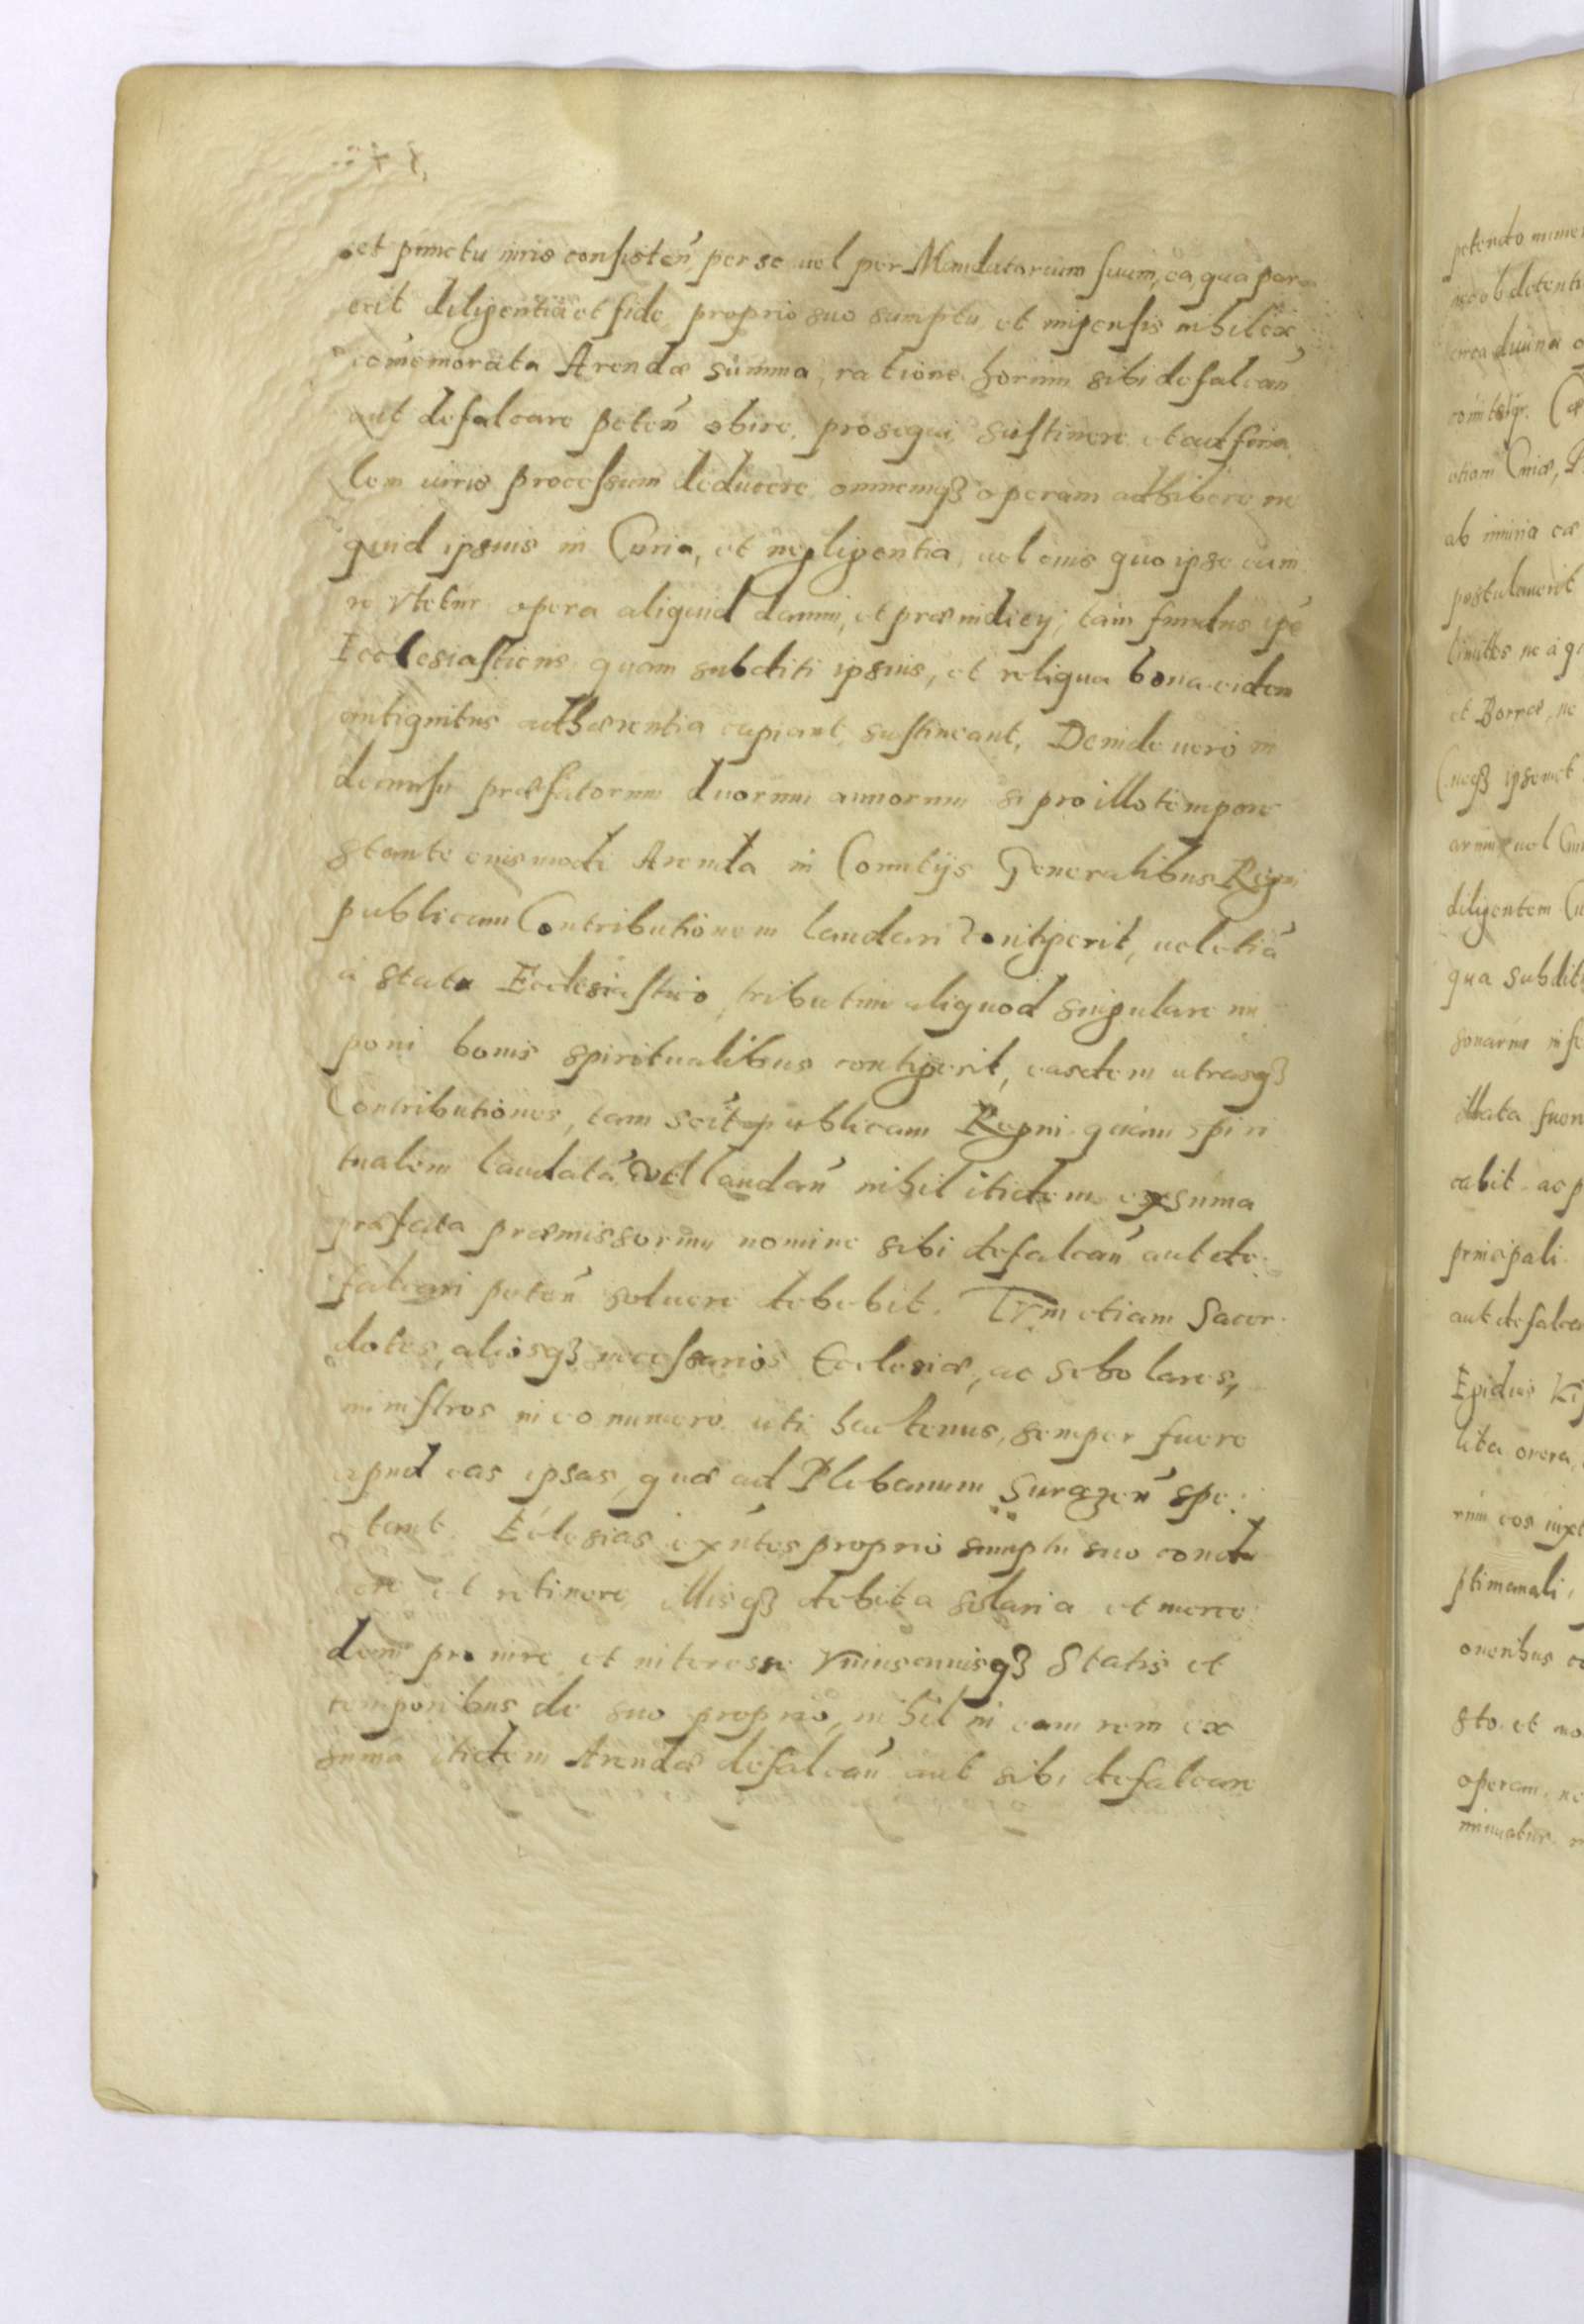 et punctu iuris consisten̄, per se uel per Mandatarium suum, ea, qua par
erit diligentia et fide, proprio suo sumptu, et impensis nihil ex
com̄emorata Arendæ summa, ratione horum sibi defalcan̄
aut defalcare peten̄ obire, prosequi, sustinere et ad fina
lem iuris processum deducere omnemqȝ operam adhibere ne
quid ipsius in Curia, et negligentia, uel eius quo ipse eam in
re vtetur opera aliquid damni, et præiudicij, tam fundus ip̄e
Ecclesiasticus quam subditi ipsius, et reliqua bona eidem
antiquitus adhærentia capiant, sustineant, Deinde uero in
decursu præfatorum duorum annorum si pro illo tempore
stante eiusmodi Arenda in Comitijs Generalibus Regni
publicam Contributionem laudari contigerit, uel etiā
a statu Ecclesiastico, tributum aliquod singulare im
poni bonis spiritualibus contigerit, easdem utrasqȝ
Contributiones, tam scit publicam Regni quam spiri
tualem laudatā uel laudan̄ nihil itidem ex suma
præfata præmissorum nomine sibi defalcan̄ aut de
falcari peten̄ soluere debebit. Tum etiam Sacer
dotes, aliosqȝ necessarios Ecclesiæ, ac scholares,
ministros in eo numero uti hactenus, semper fuere
apud eas ipsas, quæ ad Plebanum Surazen̄ spe
ctant Ec̄lesias ex̄ntes proprio sumptu suo condu
cere et retinere, illisqȝ debita solaria et merce
dem pro iure et interesse vniuscuiusqȝ statis et
temporibus de suo proprio, nihil in eam rem ex
suma itidem Arendæ defalcan̄ aut sibi defalcare
petendo
ab iniuria
postulauerit
limites ne
et Borræ, ne
diligentem
qua subdit
illata
principali
aut defalca
oneribus
sto. et
operam, ne